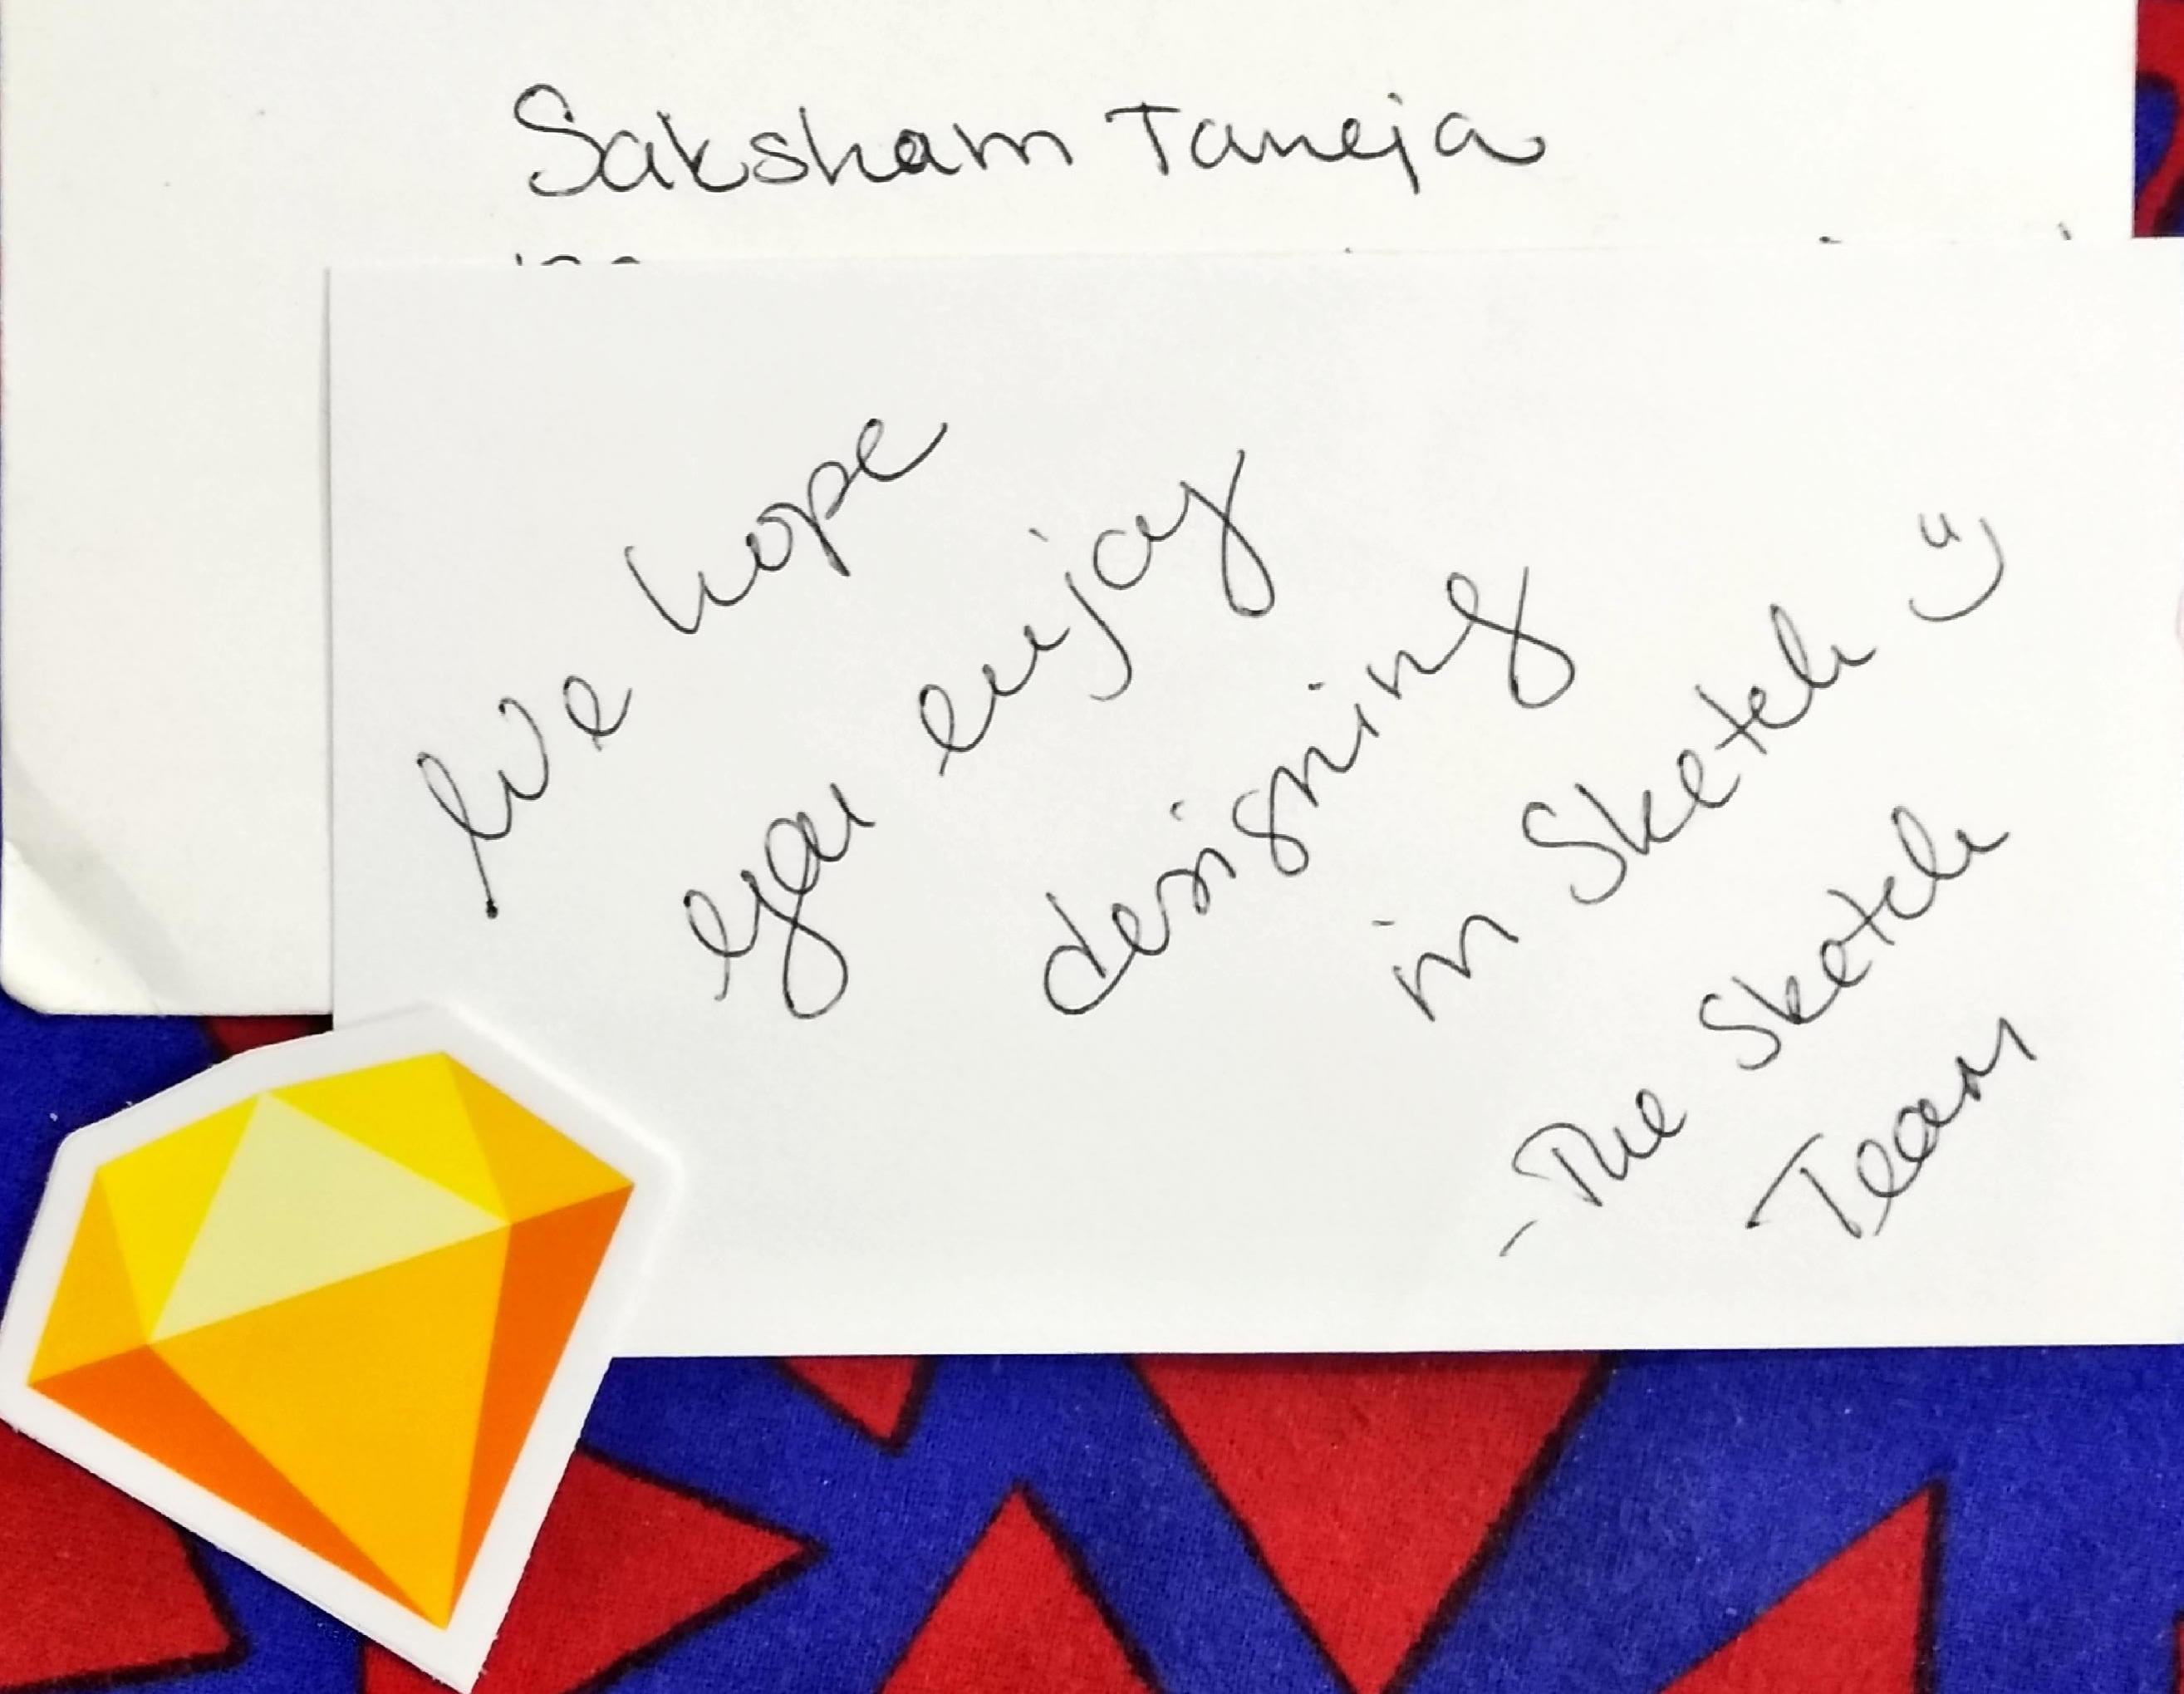 Saksham Taneja
We hope
you enjoy
designing
in Sketch :)
- The Sketch
Team